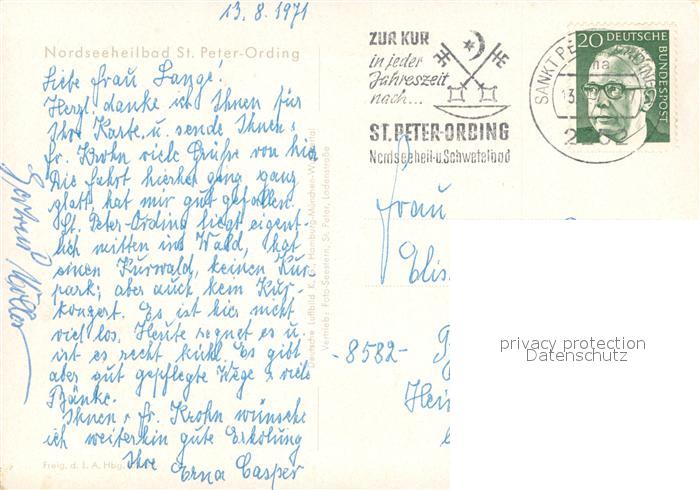 13.8.1971
Nordseeheilbad St. Peter-Ording
Liebe Frau Lange!
Herzl. danke ich Ihnen für
Ihre Karte u. sende Ihnen,
fr. Krohn viele Grüße von hier
Die Fahrt hierher ging ganz
glatt, hat mir gut gefallen.
St. Peter-Ording liegt eigent-
lich mitten im Wald, hat
einen Kurwald, keinen Kur-
park, aber auch kein Kur-
konzert. Es ist hier nicht
viel los. Heute regnet es u.
ist es recht kühl. Es gibt
aber gut gepflegte Wege u. viele
Bänke.
Ihnen, fr. Krohn wünsche
ich weiterhin gute Erholung
Ihre Erna Casper
Freig. d. L. A. Hbg.
Gertrud Müller
Deutsche Luftbild K. G. Hamburg-München-W
Vertrieb: Foto-Seestern, St. Peter, Ladenstraße
ZUR KUR
in jeder
Jahreszeit
nach...
ST. PETER-ORDING
Nordseeheil-u.Schwefelbad
SANKT PE
13.
2252
20 DEUTSCHE
BUNDESPOST
Frau
Elis
-8582-
Hei
privacy protection
Datenschutz